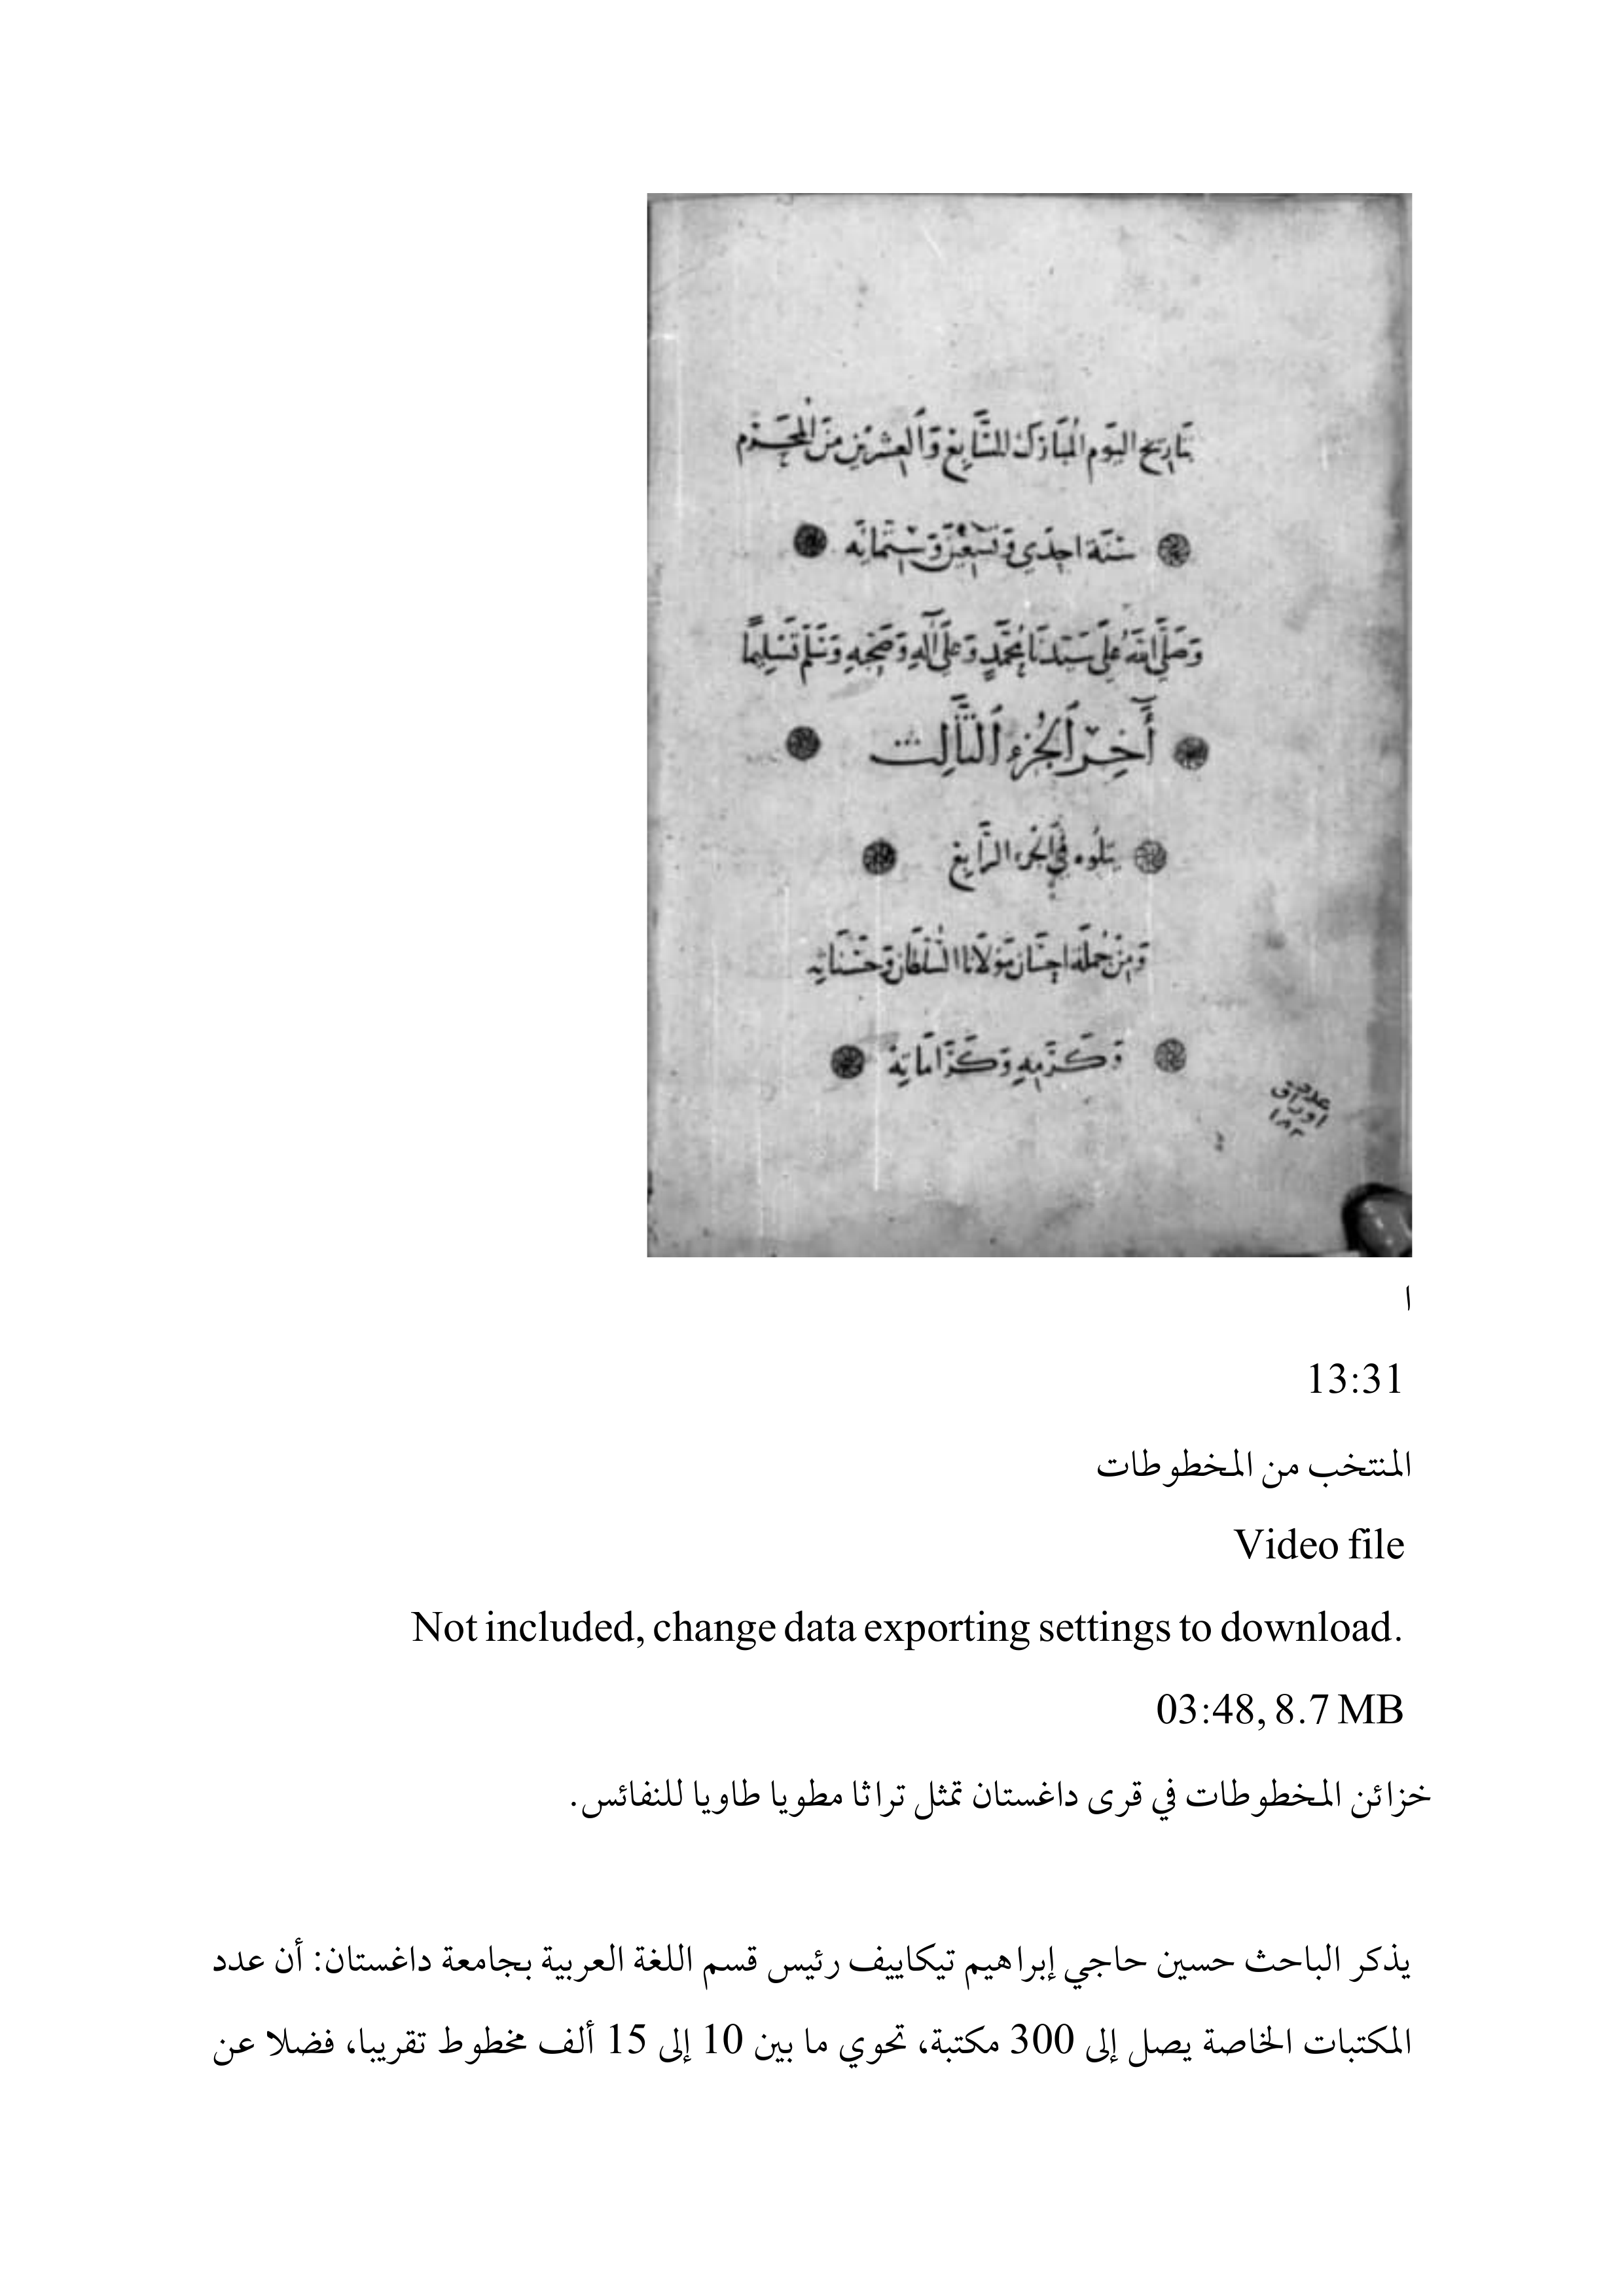 بتاريخ اليوم المبارك السابع والعشرين من المحرم
سنة احدى وتسعين وستمائه
وصلى الله على سيدنا محمد وعلى آله وصحبه وسلم تسليما
آخر الجزء الثالث
يتلوه في الجزء الرابع
ومن جملة احسان مولانا السلطان وحسناته
وكرمه وكراماته
عدد
اوراق
١٨٢
ا
13:31
المنتخب من المخطوطات
Video file
Not included, change data exporting settings to download.
03:48, 8.7 MB
خزائن المخطوطات في قرى داغستان تمثل تراثا مطويا طاويا للنفائس.
يذكر الباحث حسين حاجي إبراهيم تيكاييف رئيس قسم اللغة العربية بجامعة داغستان: أن عدد
المكتبات الخاصة يصل إلى 300 مكتبة، تحوي ما بين 10 إلى 15 ألف مخطوط تقريبا، فضلا عن